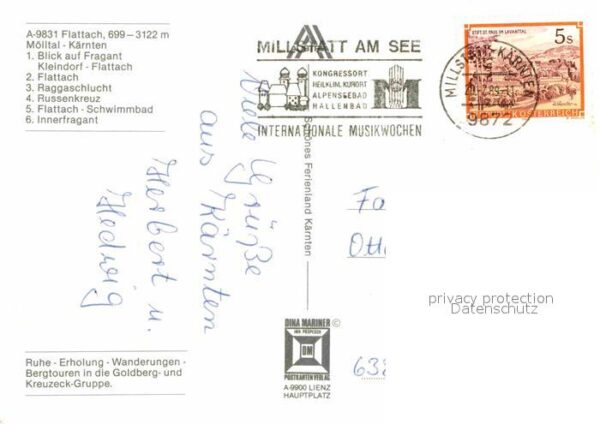 A-9831 Flattach, 699-3122 m
Mölltal - Kärnten
1. Blick auf Fragant
Kleindorf - Flattach
2. Flattach
3. Raggaschlucht
4. Russenkreuz
5. Flattach - Schwimmbad
6. Innerfragant
MILLSTATT AM SEE
KONGRESSORT
HEILKLIM. KURORT
ALPENSEEBAD
HALLENBAD
INTERNATIONALE MUSIKWOCHEN
STIFT ST. PAUL IM LAVANTTAL
5s
REPUBLIK ÖSTERREICH
MILLSTATT, KÄRNTEN
9872
Viele Grüße
aus Kärnten
Herbert u.
Hedwig
Schönes Ferienland Kärnten
Fa
Otto
privacy protection
Datenschutz
632
DINA MARINER ©
DM
POSTKARTEN VERLAG
A-9900 LIENZ
HAUPTPLATZ
Ruhe - Erholung - Wanderungen -
Bergtouren in die Goldberg- und
Kreuzeck-Gruppe.